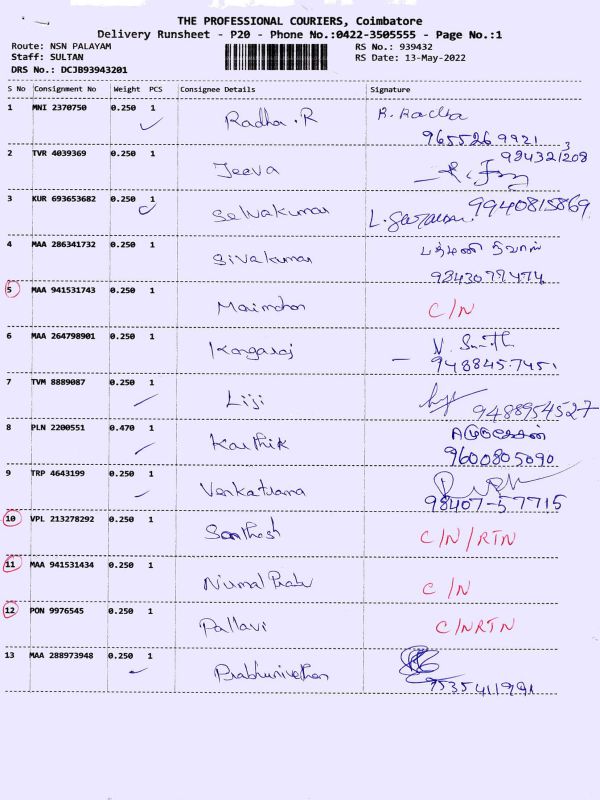 THE PROFESSIONAL COURIERS, Coimbatore
Delivery Runsheet - P20 - Phone No.:0422-3505555 - Page No.:1
Route: NSN PALAYAM RS No.: 939432
Staff: SULTAN RS Date: 13-May-2022
DRS No.: DCJB93943201
S No Consignment No Weight PCS Consignee Details Signature
1 MNI 2370750 0.250 1 Radha.R R. Radha
9655269921
2 TVR 4039369 0.250 1 Jeeva
3 KUR 693653682 0.250 1 Selvakumar 9940815869
4 MAA 286341732 0.250 1 Sivakumar
9843077474
5 MAA 941531743 0.250 1 C/N
6 MAA 264798901 0.250 1 Kangaraj
9488457451
7 TVM 8889087 0.250 1 Liji 9488954527
8 PLN 2200551 0.470 1 Karthik
9600805090
9 TRP 4643199 0.250 1
98407-57715
10 VPL 213278292 0.250 1 Santhosh C/N/RTN
11 MAA 941531434 0.250 1 C/N
12 PON 9976545 0.250 1 Pallavi C/NRTN
13 MAA 288973948 0.250 1
9535411991